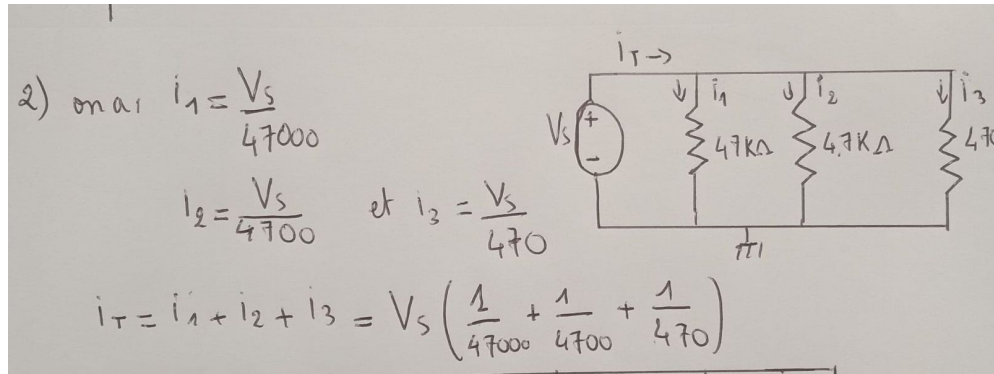 2) on a: i₁ = Vs/47000
i₂ = Vs/4700 et i₃ = Vs/470
i_T = i₁ + i₂ + i₃ = Vs (1/47000 + 1/4700 + 1/470)
i_T →
↓ i₁ ↓ i₂ ↓ i₃
Vs + - 47KΩ 4.7KΩ 470